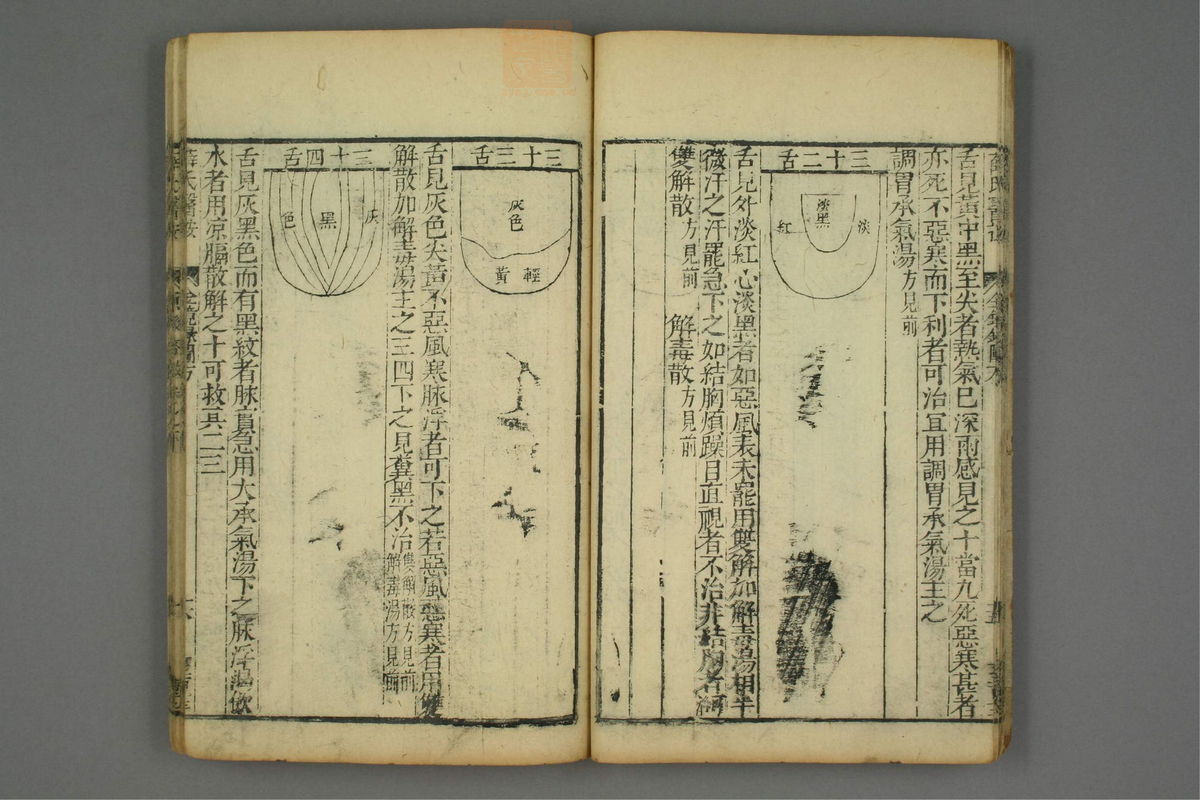 舌見黃中黑至尖者熱氣已深兩感見之十當九死惡寒甚者
亦死不惡寒而下利者可治宜用調胃承氣湯主之
調胃承氣湯方見前
舌二十三
淡
淡黑
紅
舌見外淡紅心淡黑者如惡風表未罷用雙解加解毒湯相半
微汗之汗罷急下之如結胸煩躁目直視者不治非結胸者
雙解散方見前 解毒散方見前
舌三十三
灰色
輕
黃
舌見灰色尖黃不惡風寒脉浮者可下之若惡風惡寒者用雙
解散加解毒湯主之三四下之見糞黑不治雙解散方見前解毒湯方見前
舌四十三
灰
黑
色
舌見灰黑色而有黑紋者脉實急用大承氣湯下之脉浮渴飲
水者用凉膈散解之十可救其二三
薛氏醫按